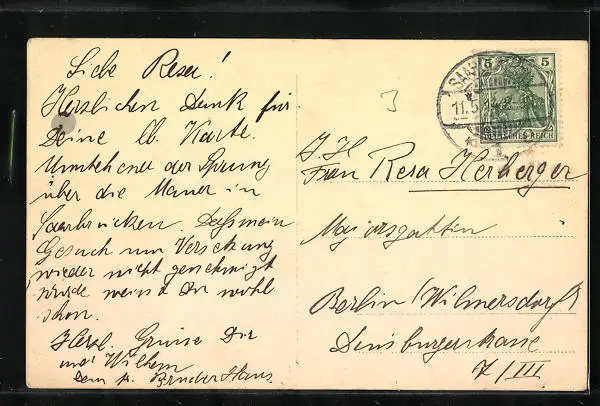 Liebe Resa!
Herzlichen Dank für
Deine lb. Karte.
Umstehend der Sprung
über die Mauer in
Saarbrücken. Daß mein
Gesuch um Versetzung
wieder nicht genehmigt
wurde weißt Du wohl
schon.
Herzl. Grüße Dir
und Wilhem
Dein Bruder Hans.
5 5
SAAR
11.5.14.
DEUTSCHES REICH
3
I. H.
Frau Resa Herberger
Majorsgattin
Berlin (Wilmersdorf)
Duisburgerstrasse
7/III